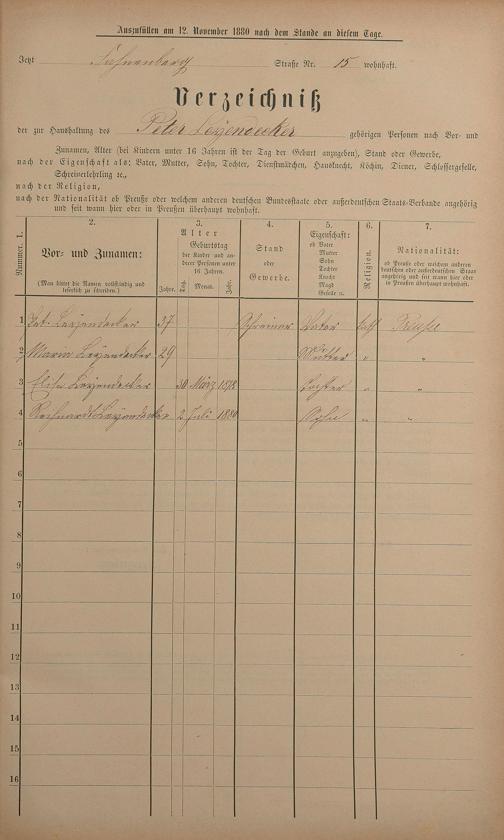 Auszufüllen am 12. November 1880 nach dem Stande an diesem Tage.
Jetzt Straße Nr. 15 wohnhaft.
Verzeichniß
der zur Haushaltung des Peter Leyendecker gehörigen Personen nach Vor- und
Zunamen, Alter (bei Kindern unter 16 Jahren ist der Tag der Geburt anzugeben), Stand oder Gewerbe,
nach der Eigenschaft als: Vater, Mutter, Sohn, Tochter, Dienstmädchen, Hausknecht, Köchin, Diener, Schlossergeselle,
Schreiberlehrling ꝛc.,
nach der Religion,
nach der Nationalität ob Preuße oder welchem anderen deutschen Bundesstaate oder außerdeutschen Staats-Verbande angehörig
und seit wann hier oder in Preußen überhaupt wohnhaft.
Nummer. 1.
2.
Vor- und Zunamen:
(Man bittet die Namen vollständig und
leserlich zu schreiben.)
3.
Alter
Geburtstag
der Kinder und an-
derer Personen unter
16 Jahren.
Jahre. Tag. Monat. Jahr.
4.
Stand
oder
Gewerbe.
5.
Eigenschaft:
ob Vater
Mutter
Sohn
Tochter
Knecht
Magd
Geselle u.
6.
Religion.
7.
Nationalität:
ob Preuße oder welchem anderen
deutschen oder außerdeutschen Staat
angehörig und seit wann hier oder
in Preußen überhaupt wohnhaft.
1 Pet. Leyendecker 37 Schreiner Vater kath Preuße
2 Maria Leyendecker 29 Mutter " "
3 Elise Leyendecker 30 März 1878 Tochter " "
4 Leyendecker 2 Juli 1880 Sohn " "
5
6
7
8
9
10
11
12
13
14
15
16